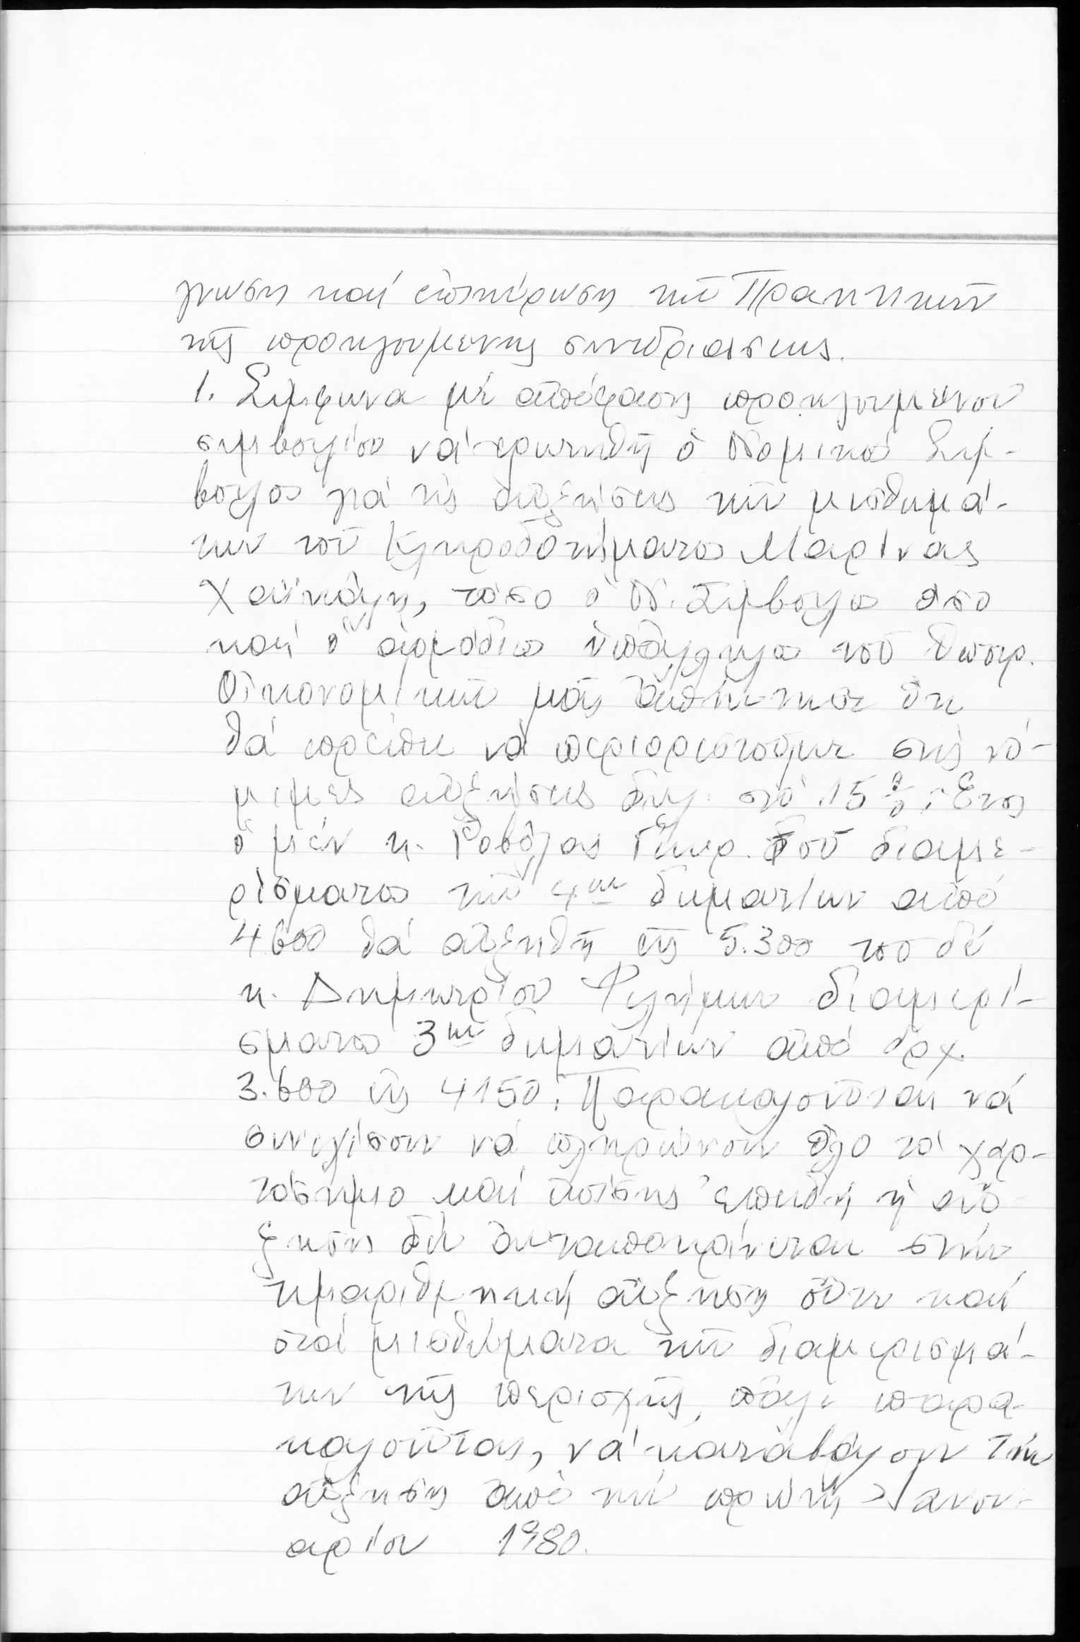 γνωση καί ἐπικύρωση τῶν Πρακτικῶν
τῆς προηγουμένης συνεδριάσεως.
1. Σύμφωνα μέ ἀπόφαση προηγουμένου
συμβουλίου νά ἐρωτηθῆ ὁ Νομικός Σύμ-
βουλος γιά τίς αὐξήσεις τῶν μισθωμά-
των τοῦ Κληροδοτήματος Μαρίνας
τόσο ὁ Ν. Σύμβουλος ὅσο
καί ὁ ἁρμόδιος ὑπάλληλος τοῦ Ὑπουρ.
Οἰκονομικῶν μᾶς ἀπήντησε ὅτι
θά πρέπει νά περιορισθοῦμε στίς νό-
μιμες αὐξήσεις δηλ. στό 15%. Ἔτσι
ὁ μέν κ. τοῦ διαμε-
ρίσματος τῶν 4ων δωματίων ἀπό
4600 θά αὐξηθῆ εἰς 5.300 τοῦ δέ
κ. Δημητρίου διαμερί-
σματος 3ων δωματίων ἀπό δρχ.
3.600 εἰς 4150. Παρακαλοῦνται νά
συνεχίσουν νά πληρώνουν ὅλο τό χαρ-
τόσημο καί ἐπίσης ἐπειδή ἡ αὔ-
ξηση δέν ἀνταποκρίνεται στήν
τιμαριθμική αὔξηση οὔτε καί
στά μισθώματα τῶν διαμερισμά-
των τῆς περιοχῆς, πάλι παρα-
καλοῦνται, νά καταβάλουν τήν
αὔξηση ἀπό τήν πρώτη Ἰανου-
αρίου 1980.